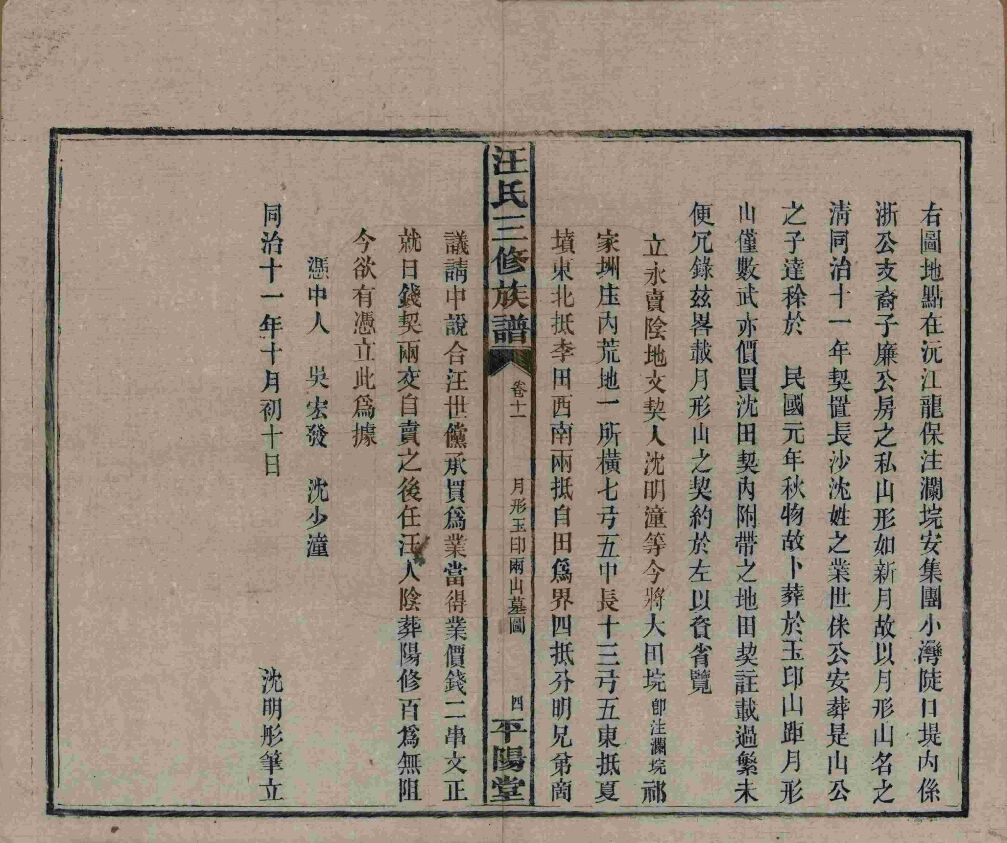 右圖地點在沅江龍保注瀾垸安集團小灣陡口堤内係
浙公支裔子廉公房之私山形如新月故以月形山名之
清同治十一年契置長沙沈姓之業世侎公安葬是山公
之子達稌於　民國元年秋物故卜葬於玉印山距月形
山僅數武亦價買沈田契内附帶之地田契註載過繁未
便冗錄兹畧載月形山之契約於左以資省覽
立永賣陰地文契人沈明潼等今將大田垸卽注瀾垸祁
家圳庄内荒地一所橫七弓五中長十三弓五東抵夏
墳東北抵李田西南兩抵自田爲界四抵分明兄弟商
汪氏三修族譜
卷十一
月形玉印兩山墓圖
四
平陽堂
議請中說合汪世儻承買爲業當得業價錢二串文正
就日錢契兩交自賣之後任汪人陰葬陽修百爲無阻
今欲有憑立此爲據
憑中人　吳宏發　沈少潼
同治十一年十月初十日
沈明彤筆立